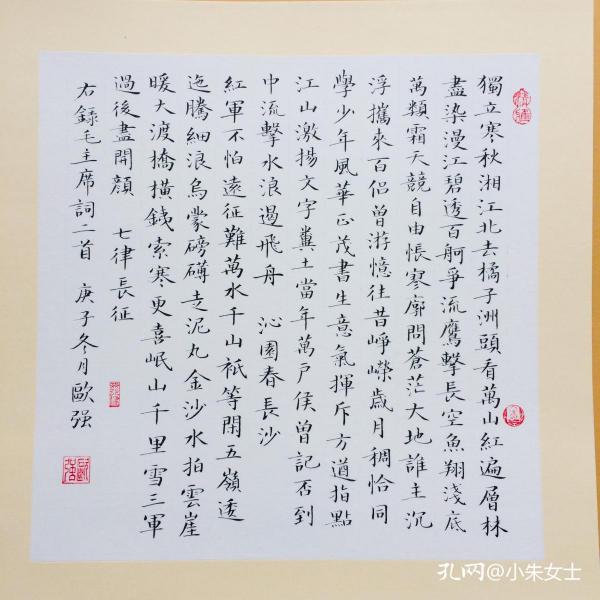 獨立寒秋湘江北去橘子洲頭看萬山紅遍層林
盡染漫江碧透百舸爭流鷹擊長空魚翔淺底
萬類霜天競自由悵寥廓問蒼茫大地誰主沉
浮攜來百侶曾游憶往昔崢嶸歲月稠恰同
學少年風華正茂書生意氣揮斥方遒指點
江山激揚文字糞土當年萬戶侯曾記否到
中流擊水浪過飛舟 沁園春長沙
紅軍不怕遠征難萬水千山祇等閑五嶺逶
迤騰細浪烏蒙磅礴走泥丸金沙水拍雲崖
暖大渡橋橫鐵索寒更喜岷山千里雪三軍
過後盡開顏 七律長征
右錄毛主席詞二首 庚子冬月歐强
孔网@小朱女士